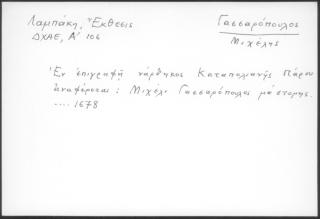 Λαμπάκη, Ἔκθεσις
ΔΧΑΕ, Α' 106
Γασσαρόπουλος
Μιχέλης
Ἐν ἐπιγραφῇ νάρθηκος Καταπολιανῆς Πάρου
ἀναφέρεται: Μιχέλι Γασσαρόπουλος μάστορης.
.... 1678